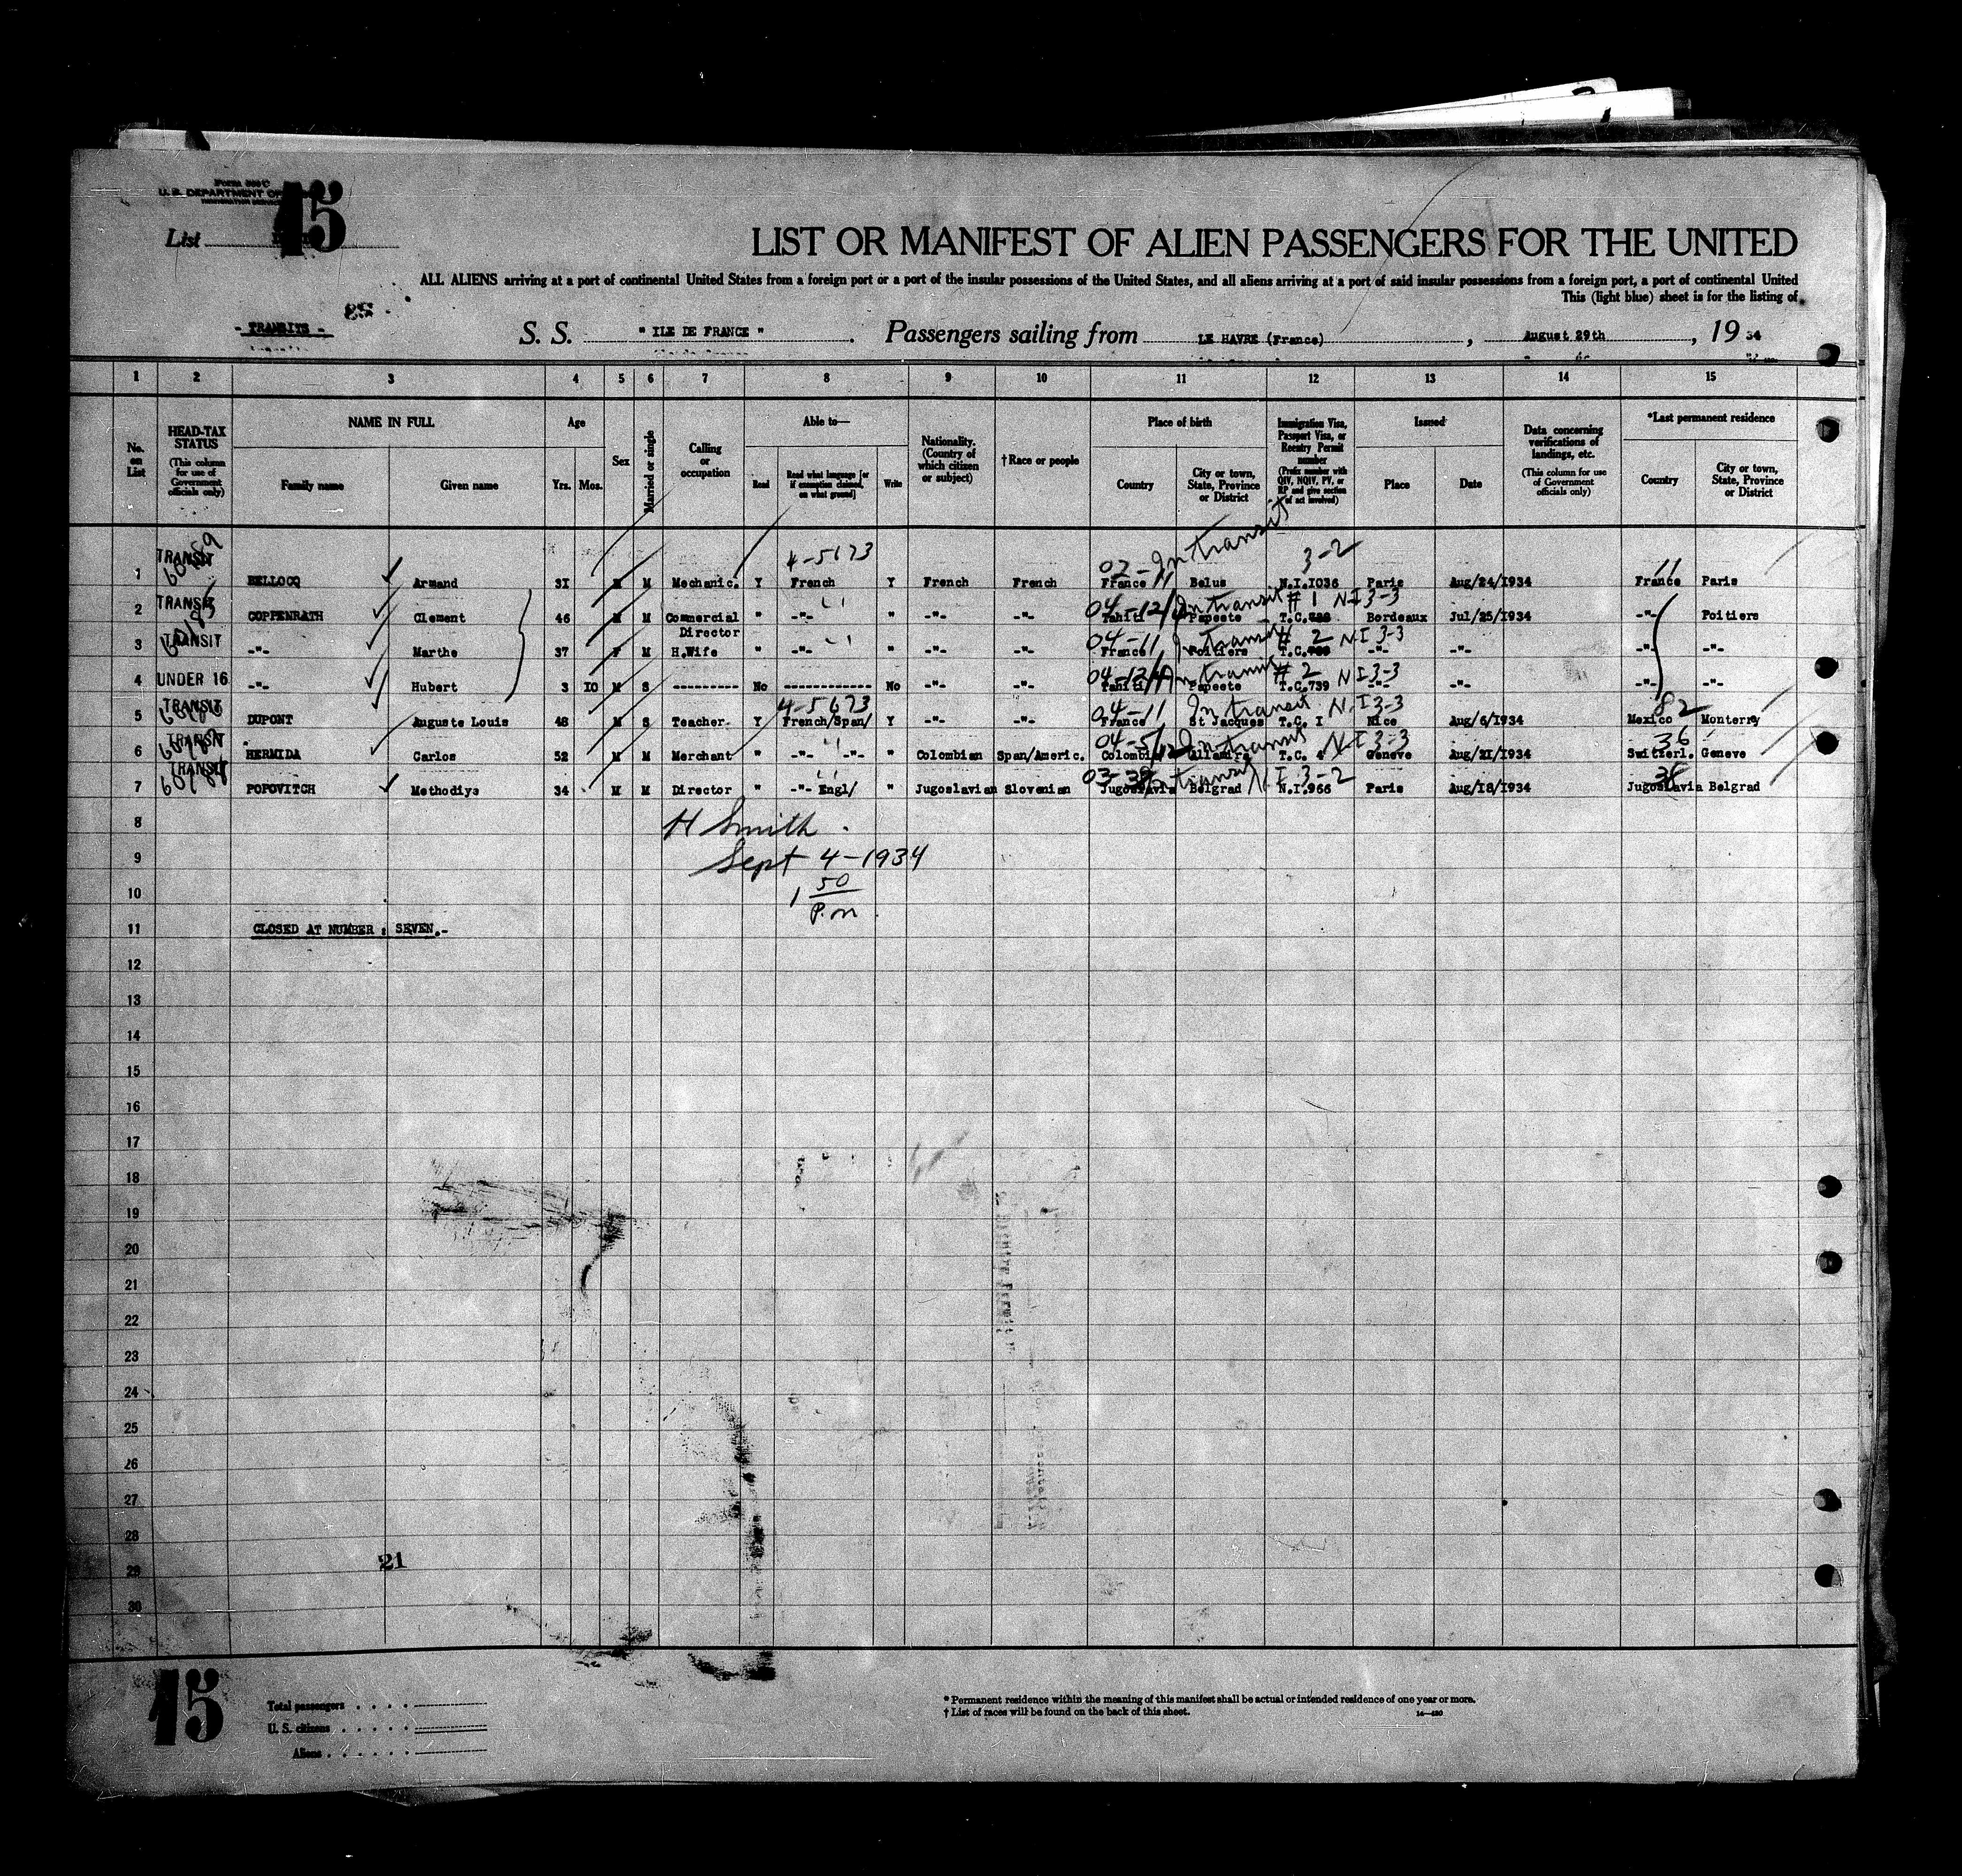 Form 500 C
U. S. DEPARTMENT OF
45
List
LIST OR MANIFEST OF ALIEN PASSENGERS FOR THE UNITED
ALL ALIENS arriving at a port of continental United States from a foreign port or a port of the insular possessions of the United States, and all aliens arriving at a port of said insular possessions from a foreign port, a port of continental United
This (light blue) sheet is for the listing of
- TRANSITS -
S. S. " ILE DE FRANCE " . Passengers sailing from LE HAVRE (France) , August 29th , 19 34
1 2 3 4 5 6 7 8 9 10 11 12 13 14 15
No. on List
HEAD-TAX STATUS (This column for use of Government officials only)
NAME IN FULL
Family name Given name
Age
Yrs. Mos.
Sex
Married or single
Calling or occupation
Able to—
Read
Read what language [or if exemption claimed, on what ground]
Write
Nationality. (Country of which citizen or subject)
†Race or people
Place of birth
Country
City or town, State, Province or District
Immigration Visa, Passport Visa, or Reentry Permit number (Prefix number with QIV, NQIV, PV, or RP and give section of act involved)
Issued
Place Date
Data concerning verifications of landings, etc. (This column for use of Government officials only)
*Last permanent residence
Country
City or town, State, Province or District
4-5673 02- In transit 3-2 11
1 TRANSIT BELLOCQ Armand 31 M M Mechanic. Y French Y French French France Belus N.I.1036 Paris Aug/24/1934 France Paris
04-12/11 In transit #1 NI 3-3
2 TRANSIT COPPENRATH Clement 46 M M Commercial Director " -"- " -"- -"- Tahiti Papeete T.C. Bordeaux Jul/25/1934 -"- Poitiers
04-11 In transit #2 NI 3-3
3 TRANSIT -"- Marthe 37 F M H.Wife " -"- " -"- -"- France Poitiers T.C. -"- -"- -"- -"-
04-12/11 In transit #2 NI 3-3
4 UNDER 16 -"- Hubert 3 10 M S --------- No ------------ No -"- -"- Tahiti Papeete T.C.739 -"- -"- -"- -"-
4-5673 04-11 In transit N.I 3-3 82
5 TRANSIT DUPONT Auguste Louis 48 M S Teacher Y French/Span/ Y -"- -"- France St Jacques T.C. I Nice Aug/6/1934 Mexico Monterry
04-5/12 In transit N.I 3-3 36
6 TRANSIT HERMIDA Carlos 52 M M Merchant " -"- -"- " Colombian Span/Americ. Colombia T.C. 4 Geneve Aug/21/1934 Switzerl. Geneve
03-38/12 transit N.I 3-2 38
7 TRANSIT POPOVITCH Methodiys 34 M M Director " -"- Engl/ " Jugoslavian Slovenian Jugoslavia Belgrad N.I.966 Paris Aug/18/1934 Jugoslavia Belgrad
8 H Smith.
9 Sept 4-1934
10 1 50 P.m
11 CLOSED AT NUMBER : SEVEN.-
12
13
14
15
16
17
18
19
20
21
22
23
24
25
26
27
28
29 21
30
45
Total passengers . . . .
U. S. citizens . . . . .
Aliens . . . . . .
* Permanent residence within the meaning of this manifest shall be actual or intended residence of one year or more.
† List of races will be found on the back of this sheet.
14—430